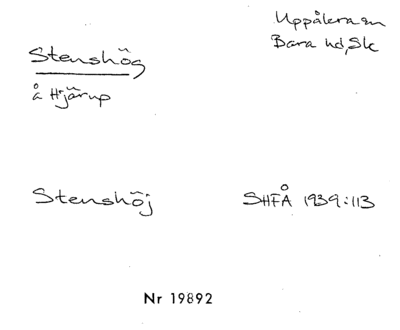 Stenshög
å Hjärup
Uppåkra sn
Bara hd, Sk
Stenshöj
SHFÅ 1939:113
Nr 19892